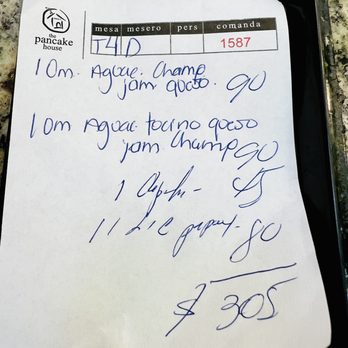 the
pancake
house
mesa mesero pers comanda
T4 D 1587
1 Om. Aguac. Champ
jam queso. 90
1 Om Aguac tocino queso
jam Champ 90
1 45
80
$ 305